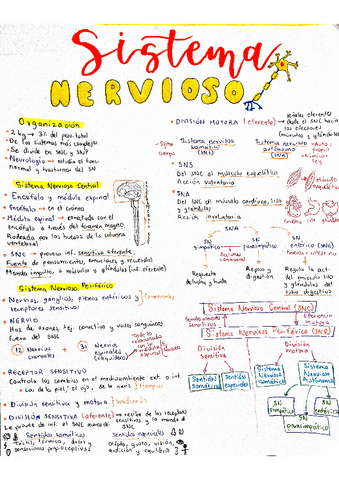 Sistema
NERVIOSO
Organización
→ 2 kg → 3% del peso total
→ De los sistemas más complejos
→ Se divide en SNC y SNP
→ Neurología → estudia el func.
normal y trastornos del SN
Sistema Nervioso Central
Encéfalo y médula espinal
Encéfalo → en el cráneo
Médula espinal → conectada con el
encéfalo a través del foramen magno.
Rodeada por los huesos de la columna
vertebral
SNC → procesa inf. sensitiva aferente
Fuente de pensamientos, emociones y recuerdos
Manda impulso a músculos y glándulas (inf. eferente)
Sistema Nervioso Periférico
Nervios, ganglios, plexos entéricos y
receptores sensitivos:
NERVIO
Haz de axones, tej. conectivo y vasos sanguíneos
fuera del SNC
12 Nervios
craneales
31 Nervios
espinales
RECEPTOR SENSITIVO
Controla los cambios en el medioambiente ext. o int.
Los de la piel, el ojo, de la nariz
División sensitiva y motora
DIVISIÓN SENSITIVA (aferente)
Sentidos somáticos
Táctil, térmico, dolor y
sensaciones propioceptivas
Sentidos especiales
Olfato, gusto, visión,
audición y equilibrio
DIVISIÓN MOTORA (eferente)
Sistema nervioso
somático
(SNS)
Sistema nervioso
autónomo
(SNA)
SNS
Del SNC al músculo esquelético
Acción voluntaria
SNA
Del SNC al músculo cardíaco, liso
y glándulas
Acción involuntaria
SNA
SN
simpático
SN
parasimpático
SN
entérico (SNE)
Respuesta
de lucha y huida
Reposo y
digestión
Regula la act.
del músculo liso
y glándulas del
tubo digestivo
Sistema Nervioso Central (SNC)
Sistema Nervioso Periférico (SNP)
División
sensitiva
División
motora
Sentidos
somáticos
Sentidos
especiales
Sistema
Nervioso
somático
Sistema
Nervioso
Autónomo
SN
simpático
SN
parasimpático
SN
entérico